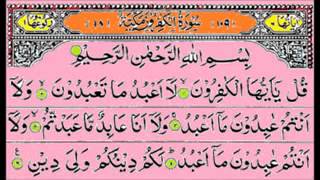 سُوْرَةُ الْكٰفِرُوْنَ مَكِّيَّةٌ
بِسْمِ اللّٰهِ الرَّحْمٰنِ الرَّحِيْمِ
قُلْ يٰٓاَيُّهَا الْكٰفِرُوْنَ لَآ اَعْبُدُ مَا تَعْبُدُوْنَ وَلَآ
اَنْتُمْ عٰبِدُوْنَ مَآ اَعْبُدُ وَلَآ اَنَا عَابِدٌ مَّا عَبَدْتُّمْ وَلَآ
اَنْتُمْ عٰبِدُوْنَ مَآ اَعْبُدُ لَكُمْ دِيْنُكُمْ وَلِيَ دِيْنِ